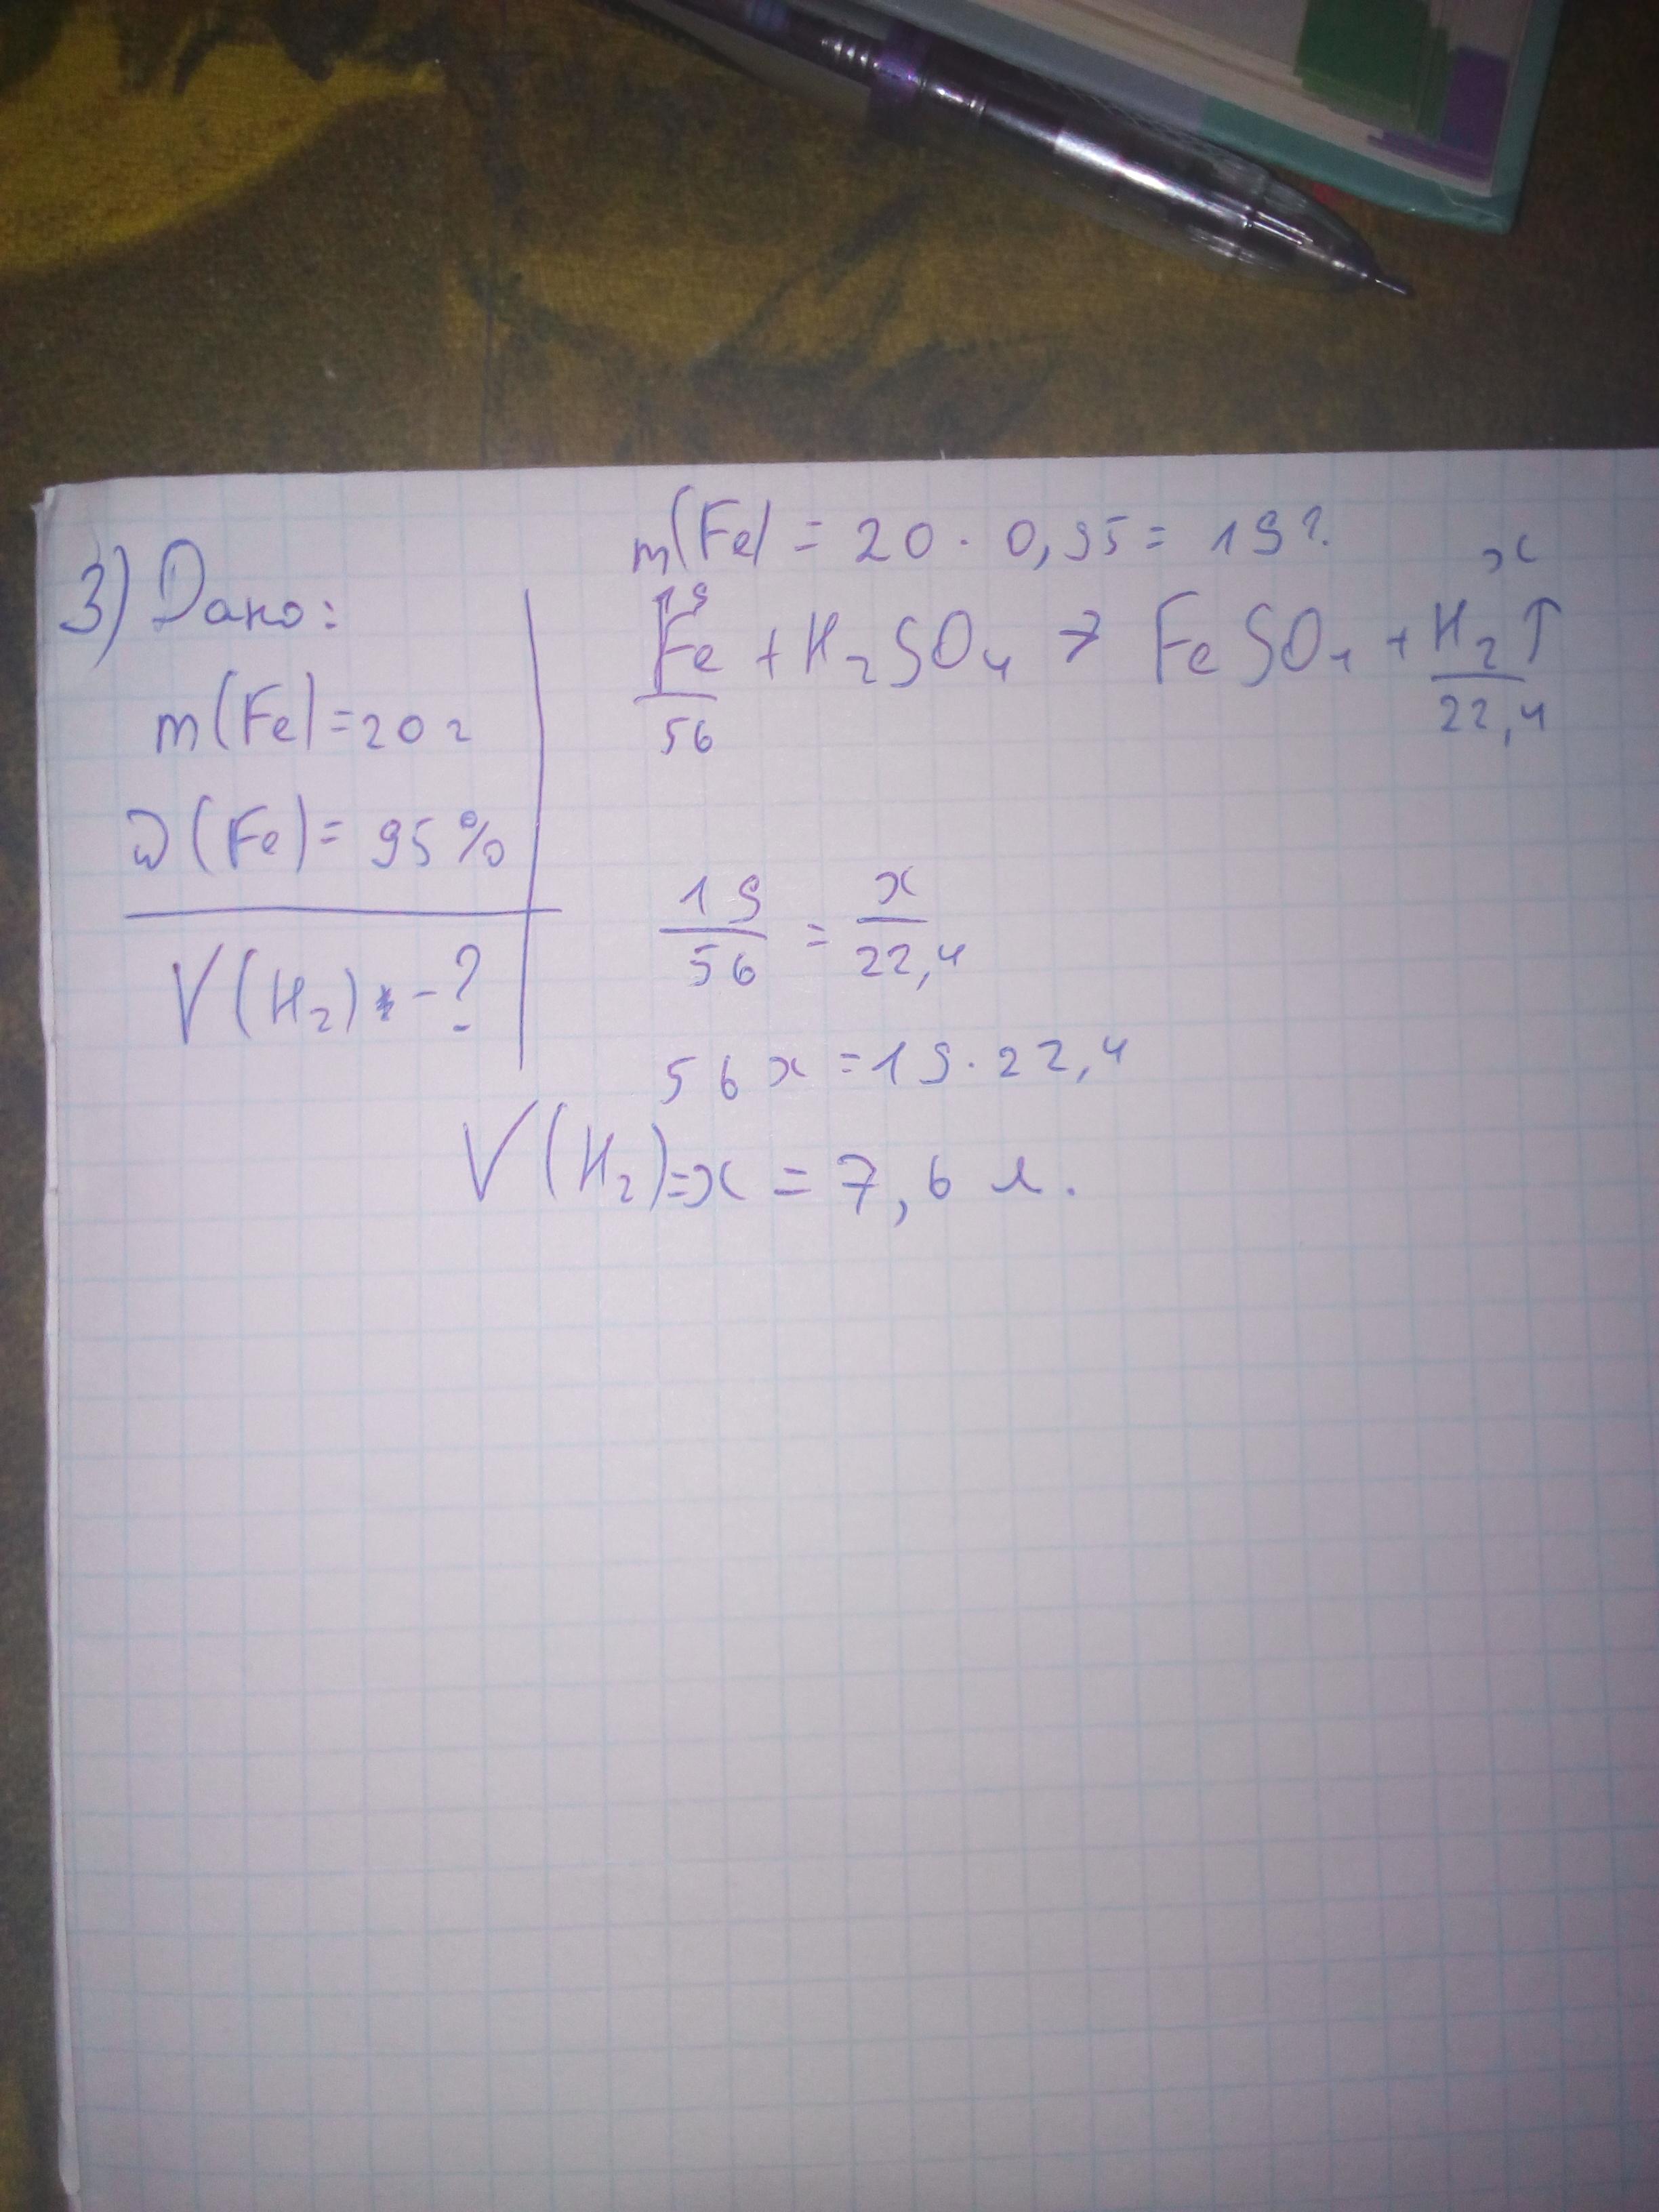 3) Дано:
m(Fe)=20г
ω(Fe)=95%
V(H₂) -?
m(Fe) = 20 · 0,95 = 19г.
19 x
Fe + H₂SO₄ → FeSO₄ + H₂↑
56 22,4
19/56 = x/22,4
56x = 19 · 22,4
V(H₂)=x = 7,6 л.